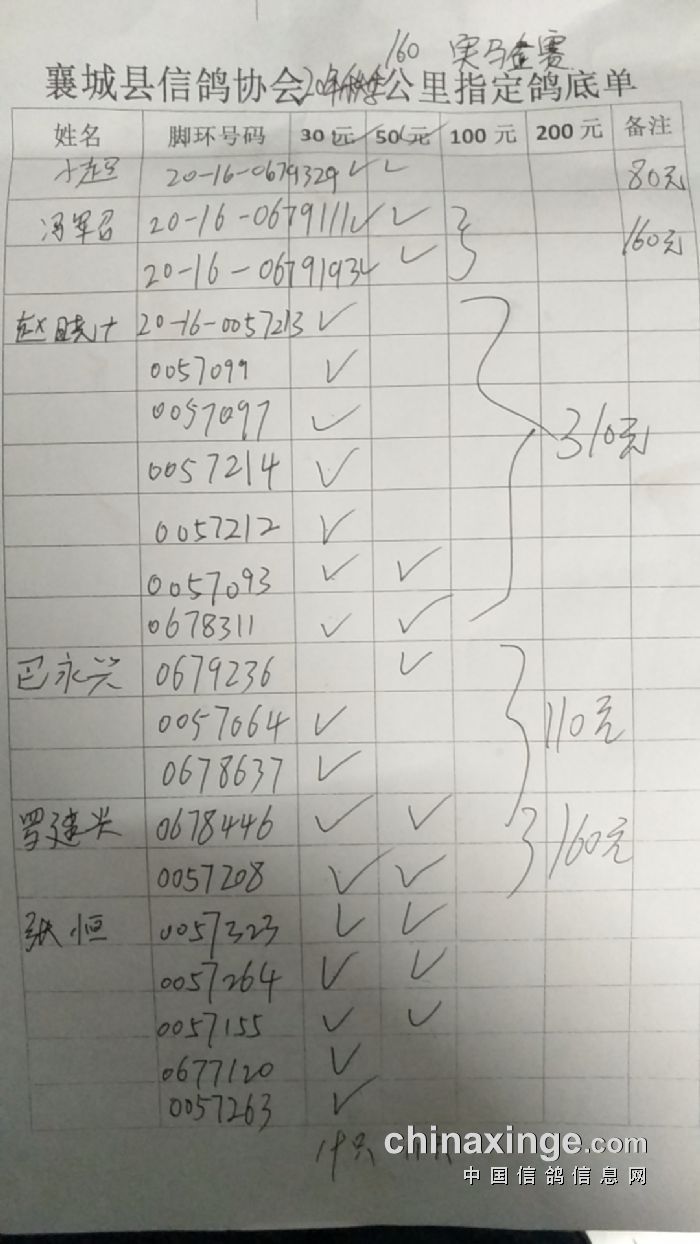 160 奖鸽金赛
襄城县信鸽协会 公里指定鸽底单
姓名 脚环号码 30元 50元 100元 200元 备注
小超 20-16-0679329 ✓ ✓ 80元
冯军召 20-16-0679111 ✓ ✓ 160元
20-16-0679193 ✓ ✓
赵晓 20-16-0057213 ✓
0057099 ✓
0057097 ✓
310元
0057214 ✓
0057212 ✓
0057093 ✓ ✓
0678311 ✓ ✓
巴永兴 0679236 ✓
0057064 ✓ 110元
0678637 ✓
罗建兴 0678446 ✓ ✓
160元
0057208 ✓ ✓
张恒 0057323 ✓ ✓
0057264 ✓ ✓
0057155 ✓ ✓
0677120 ✓
0057263 ✓
chinaxinge.com
中国信鸽信息网